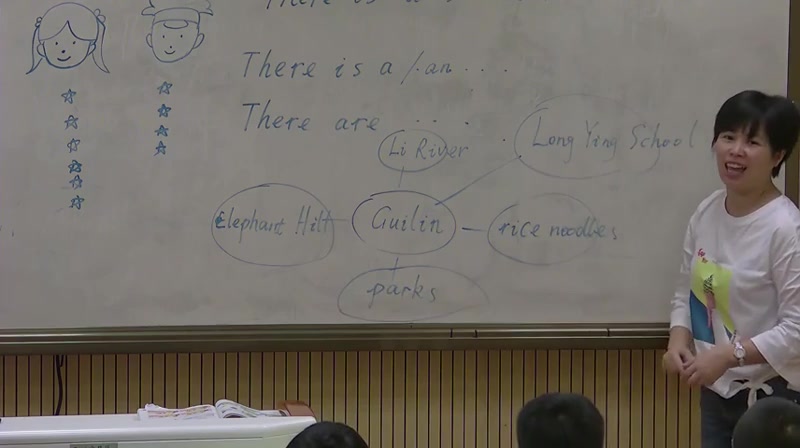 There is a
There is a/an....
There are ....
Li River
Long Ying School
Elephant Hill
Guilin
rice noodles
parks